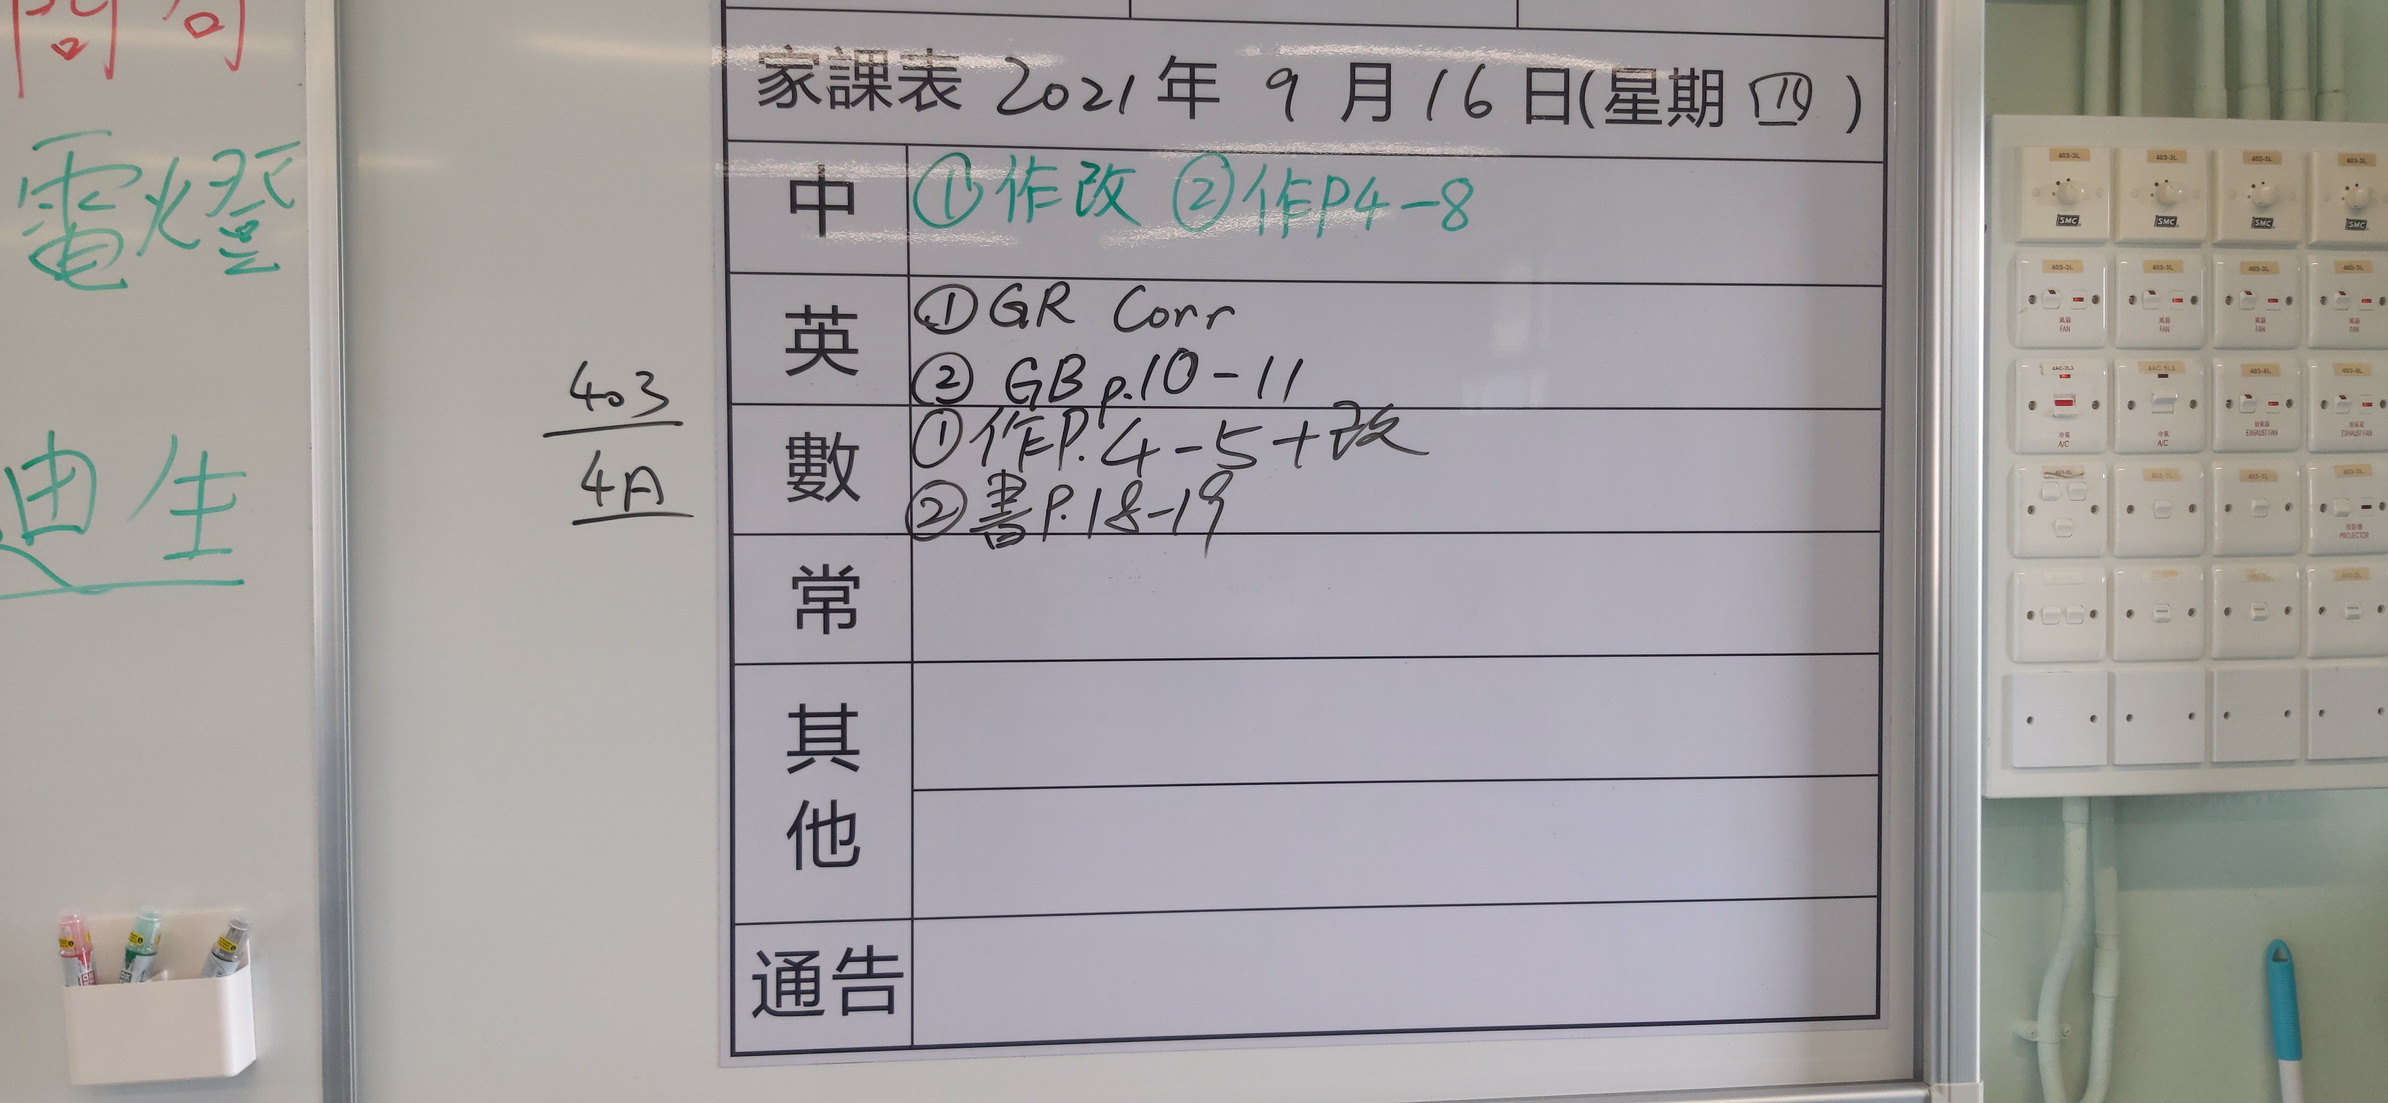 問
電燈
迪生
403
4A
家課表 2021年 9月16日(星期四)
中
①作改 ②作P4-8
英
①GR Corr
② GB p.10-11
數
①作P.4-5+改
②書P.18-19
常
其他
通告
403-3L 403-3L 403-3L 403-3L
SMC SMC SMC SMC
403-3L 403-3L 403-3L 403-3L
風扇 風扇 風扇 風扇
FAN FAN FAN FAN
冷氣 冷氣
A/C A/C EXHAUST FAN EXHAUST FAN
PROJECTOR